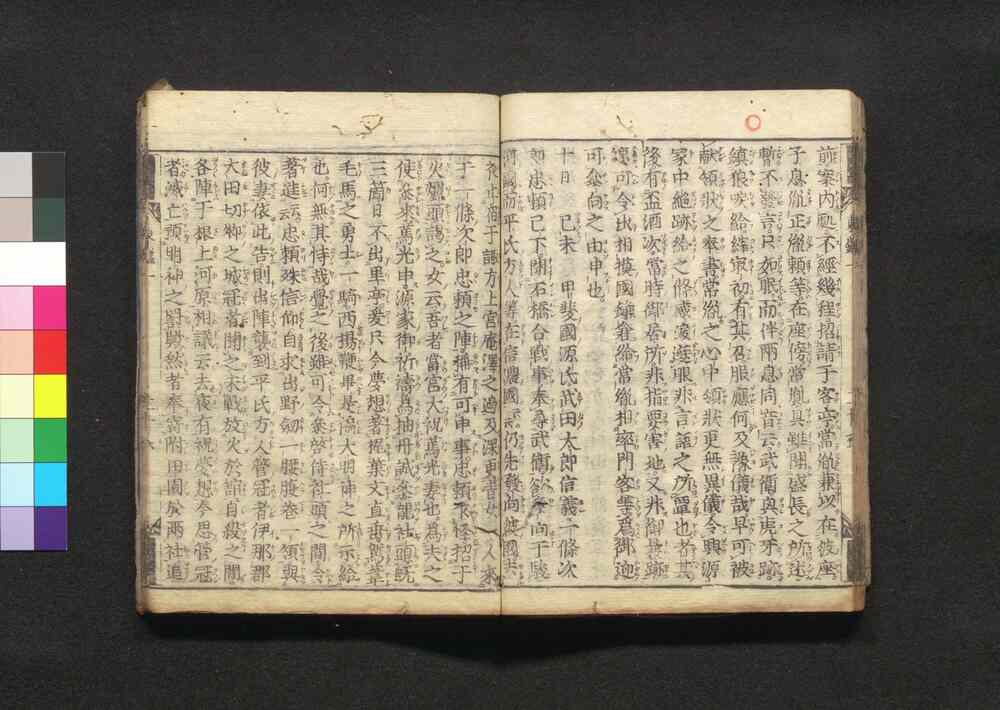 前案内處不經幾程招請于客亭當胤兼以在彼座
子息胤正胤頼等在座傍常胤具雖聞盛長之所述
暫不發言只如眠而件兩息同音云武衛興虎牙跡
鎮狼唳給縡最初有其召服應何及豫儀哉早可被
献領狀之奉書常胤之心中領狀更無異儀令興源
家中絶跡給之條感涙遮眼非言語之所覃也者其
後有盃酒次當時御居所非指要害地又非御曩跡
速可令出相摸國鎌倉給常胤相率門客等爲御迎
可參向之由申也
十日 己未 甲斐國源氏武田太郎信義一條次
郎忠頼已下聞石橋合戰事奉尋武衛欲參向于駿
河國而平氏方人等在信濃國云仍先發向彼國去
夜止宿于諏方上宮庵澤之邊及深更青女一人來
于一條次郎忠頼之陣稱有可申事忠頼乍怪招于
火爐頭謁之女云吾者當宮大祝篤光妻也爲夫之
使參來篤光申源家御祈禱爲抽丹誠參籠社頭既
三箇日不出里亭爰只今夢想著梶葉文直垂駕葦
毛馬之勇士一騎西揚鞭畢是偏大明神之所示給
也何無其恃哉覺之後雖可令參啓侍社頭之間令
著進云忠頼殊信仰自求出野劒一腰腹卷一領與
彼妻依此告則出陣襲到平氏方人管冠者伊那郡
大田切郷之城冠者聞之未戰放火於舘自殺之間
各陣于根上河原相議云去夜有祝夢想今思管冠
者滅亡預明神之罸歟然者奉寄附田園於兩社追